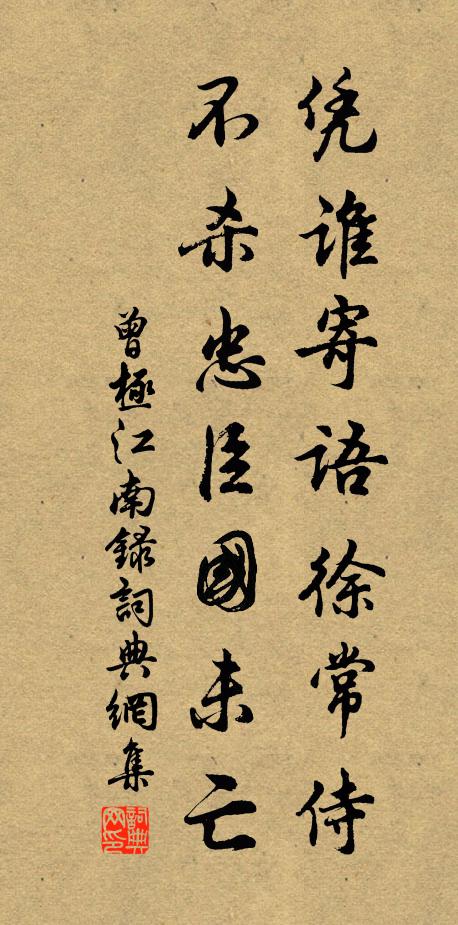 凭谁寄语徐常侍
不杀忠臣國未亡
曾極江南録詞典網集
詞典网印